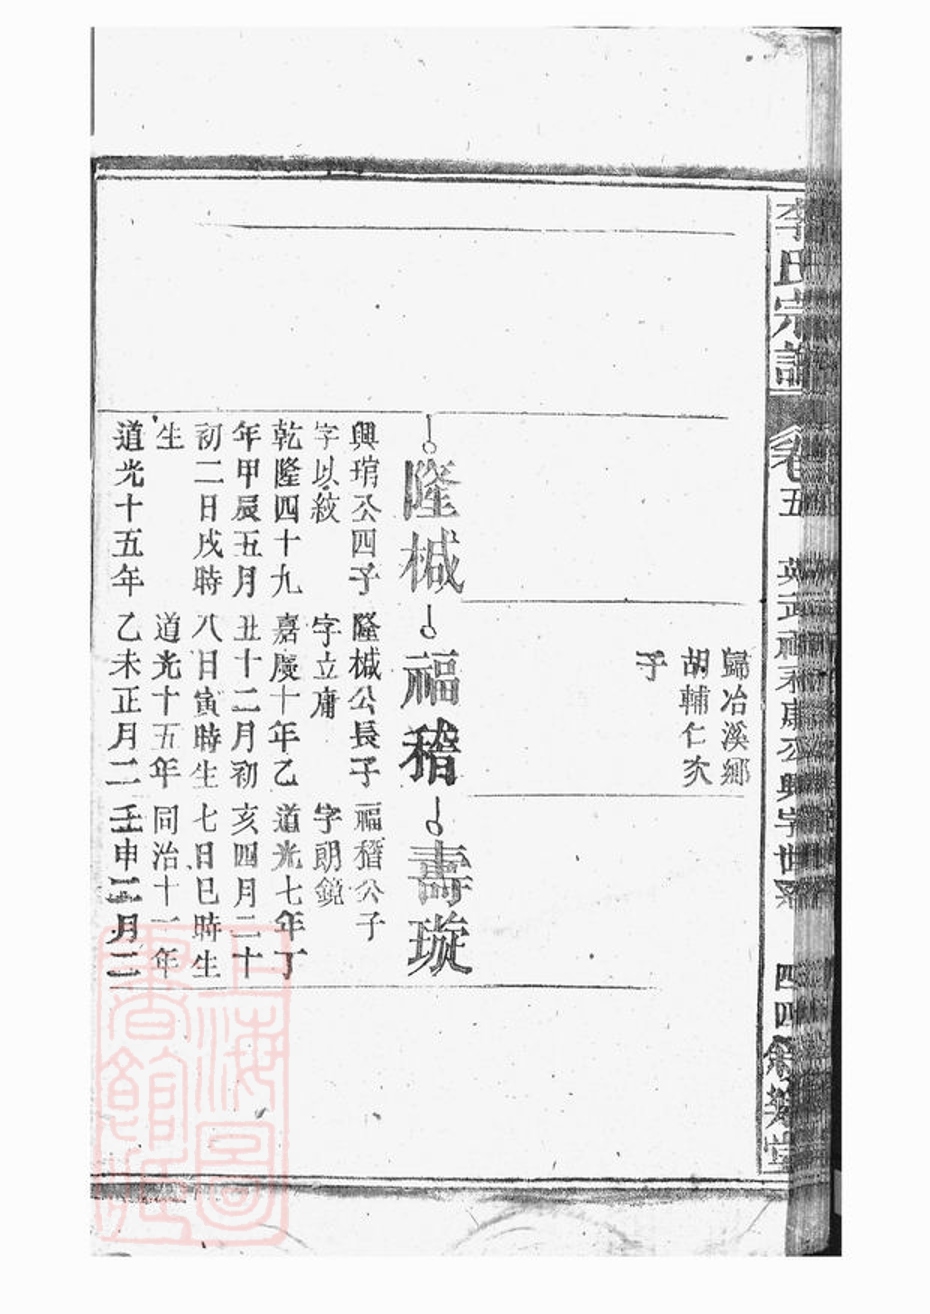 李氏宗譜
卷五
四四
歸冶溪鄉
胡輔仁次
子
隆棫
興琄公四子
字以紋
乾隆四十九
年甲辰五月
初二日戌時
生
道光十五年
福稽
隆棫公長子
字立庸
嘉慶十年乙
丑十二月初
八日寅時生
道光十五年
乙未正月二
壽璇
福稽公子
字朗鏡
道光七年丁
亥四月二十
七日巳時生
同治十一年
壬申三月二
上海圖
書館藏